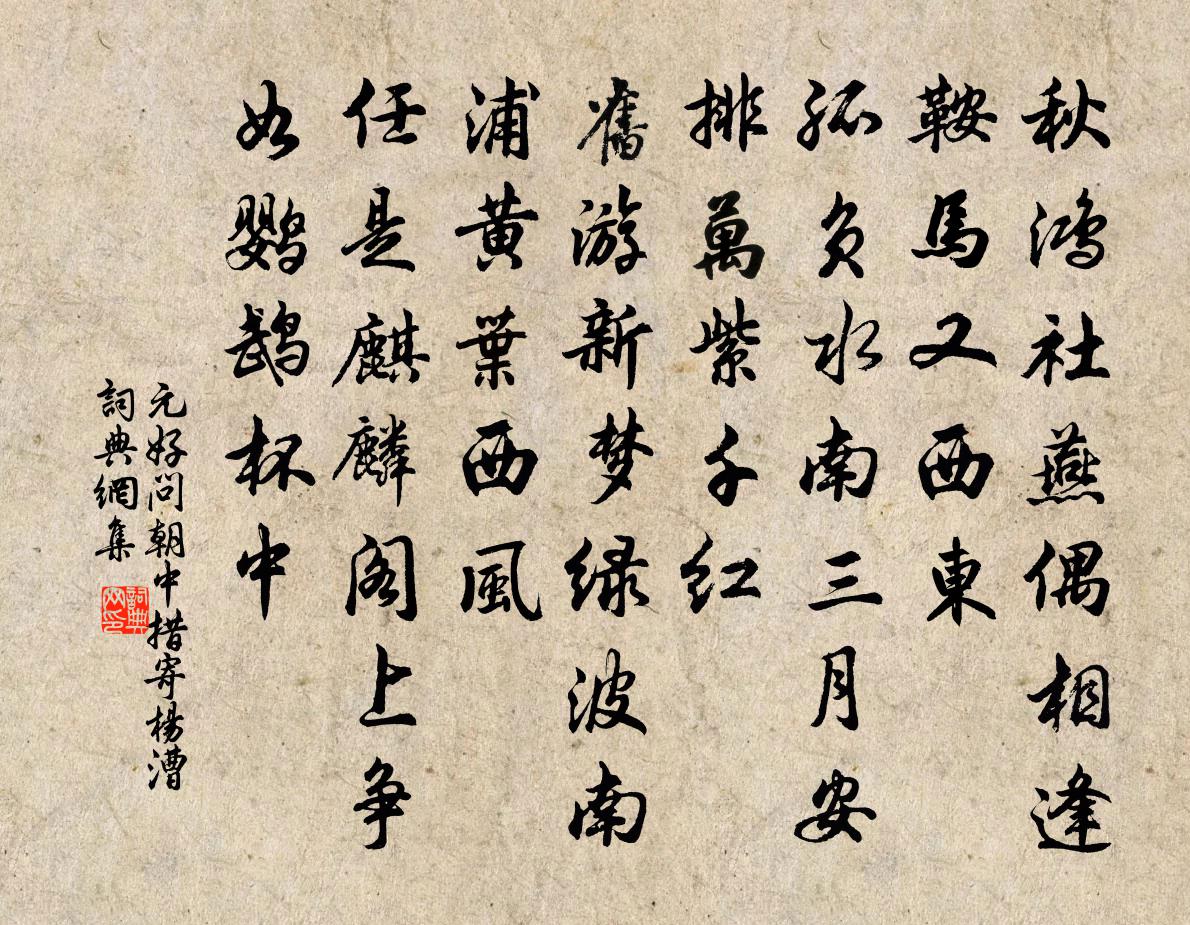 秋鸿社燕偶相逢
鞍馬又西東
孤负水南三月安
排萬紫千红
舊游新梦绿波南
浦黄葉西風
任是麒麟阁上争
如鹦鹉杯中
元好问朝中措寄楊漕
詞典網集
詞典
网印